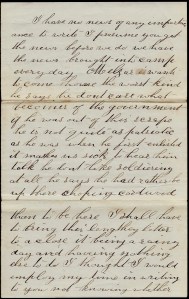 I have no news of any importance
to write I presume you get
the news before we do we have
the news brought into camp
everyday wants
to come home the worst kind
he says he dont care what
becomes of the government
if he was out of this scrape
he is not quite as patriotic
as he was when he first enlisted
it makes us to hear him
talk he dont like soldering
at all he says he had rather be
up there captured
than to be here I shall have
to bring this lengthy letter
to a close it being a rainy
day and having nothing
else to do I thought I would
employ my time in writing
to you not knowing whether